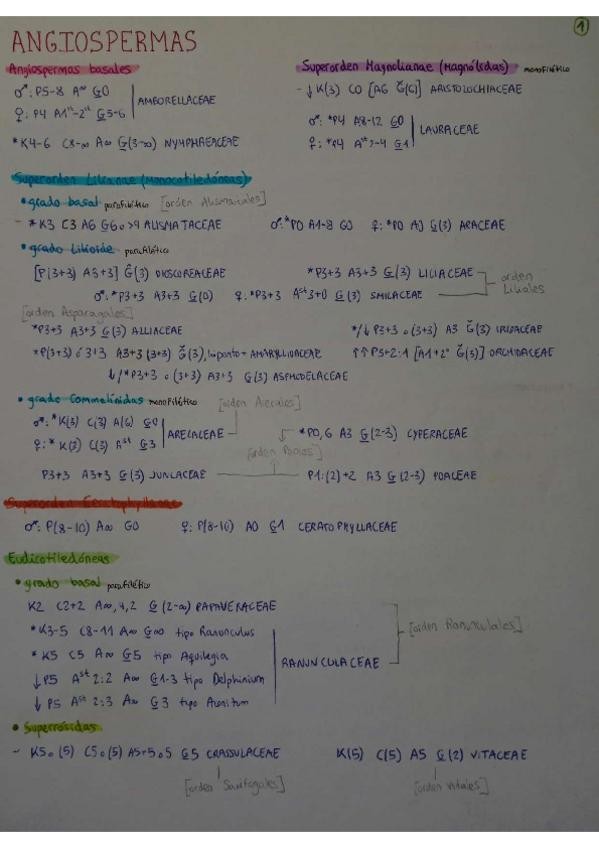 1
ANGIOSPERMAS
Angiospermas basales
♂: P5-8 A∞ G0
♀: P4 A1st-2st G5-6
AMBORELLACEAE
*K4-6 C8-∞ A∞ G(3-∞) NYMPHAEACEAE
Superorden Magnolianae (Magnólidas) monofilético
- ↓K(3) C0 [A6 Ğ(6)] ARISTOLOCHIACEAE
♂: *P4 A8-12 G0
♀: *P4 Ast2-4 G1
LAURACEAE
Superorden Lilianae (Monocotiledóneas)
• grado basal parafilético [orden Alismatales]
- *K3 C3 A6 G6 o >9 ALISMATACEAE ♂: *P0 A1-8 G0 ♀: *P0 A0 G(3) ARACEAE
• grado Lilioide parafilético
[P(3+3) A3+3] Ğ(3) DIOSCOREACEAE *P3+3 A3+3 G(3) LILIACEAE
♂: *P3+3 A3+3 G(0) ♀: *P3+3 Ast3+0 G(3) SMILACEAE
orden Liliales
[orden Asparagales]
*P3+3 A3+3 G(3) ALLIACEAE */↓ P3+3 o (3+3) A3 Ğ(3) IRIDACEAE
*P(3+3) ó 3+3 A3+3 (3+3) Ğ(3), AMARYLLIDACEAE ↑↑ P5+2:1 [A1+2° Ğ(3)] ORCHIDACEAE
↓/*P3+3 o (3+3) A3+3 G(3) ASPHODELACEAE
• grado Commelínidas monofilético [orden Arecales]
♂: *K(3) C(3) A(6) G0
♀: *K(3) C(3) Ast G3
ARECACEAE
*P0,6 A3 G(2-3) CYPERACEAE
[orden Poales]
P3+3 A3+3 G(3) JUNCACEAE P1:(2)+2 A3 G(2-3) POACEAE
Superorden Ceratophyllanae
♂: P(8-10) A∞ G0 ♀: P(8-10) A0 G1 CERATOPHYLLACEAE
Eudicotiledóneas
• grado basal parafilético
K2 C2+2 A∞,4,2 G(2-∞) PAPAVERACEAE
*K3-5 C8-11 A∞ G∞ tipo Ranunculus
*K5 C5 A∞ G5 tipo Aquilegia
↓P5 Ast2:2 A∞ G1-3 tipo Delphinium
↓P5 Ast2:3 A∞ G3 tipo Aconitum
RANUNCULACEAE
[orden Ranunculales]
• Superrósidas
- K5 o (5) C5 o (5) A5+5 o 5 G5 CRASSULACEAE K(5) C(5) A5 G(2) VITACEAE
[orden Saxifragales] [orden Vitales]